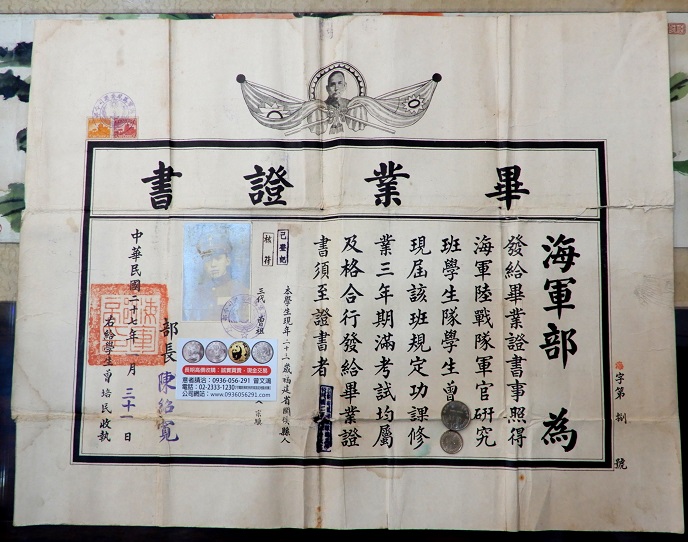 畢業證書
海軍部 為
發給畢業證書事照得
海軍陸戰隊軍官研究
班學生隊學生曾
現届該班規定功課修
業三年期滿考試均屬
及格合行發給畢業證
書須至證書者
本學生現年二十二歲福建省閩侯縣人
三代 曾祖
已登記
核符
部長 陳紹寬
右給學生曾培民收執
中華民國二十七年 一月三十一日
字第捌號
長期高價收購:誠實買賣,現金交易
意者請洽:0936-056-291 曾文鴻
電話:02-2333-1230
公司網站:www.0936056291.com